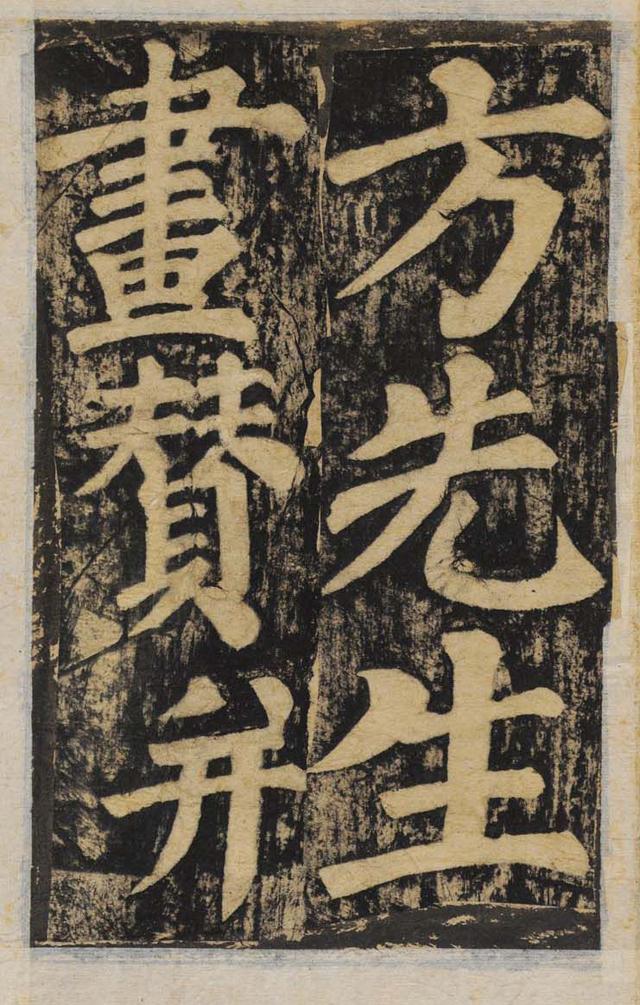 方先生
畫贊并